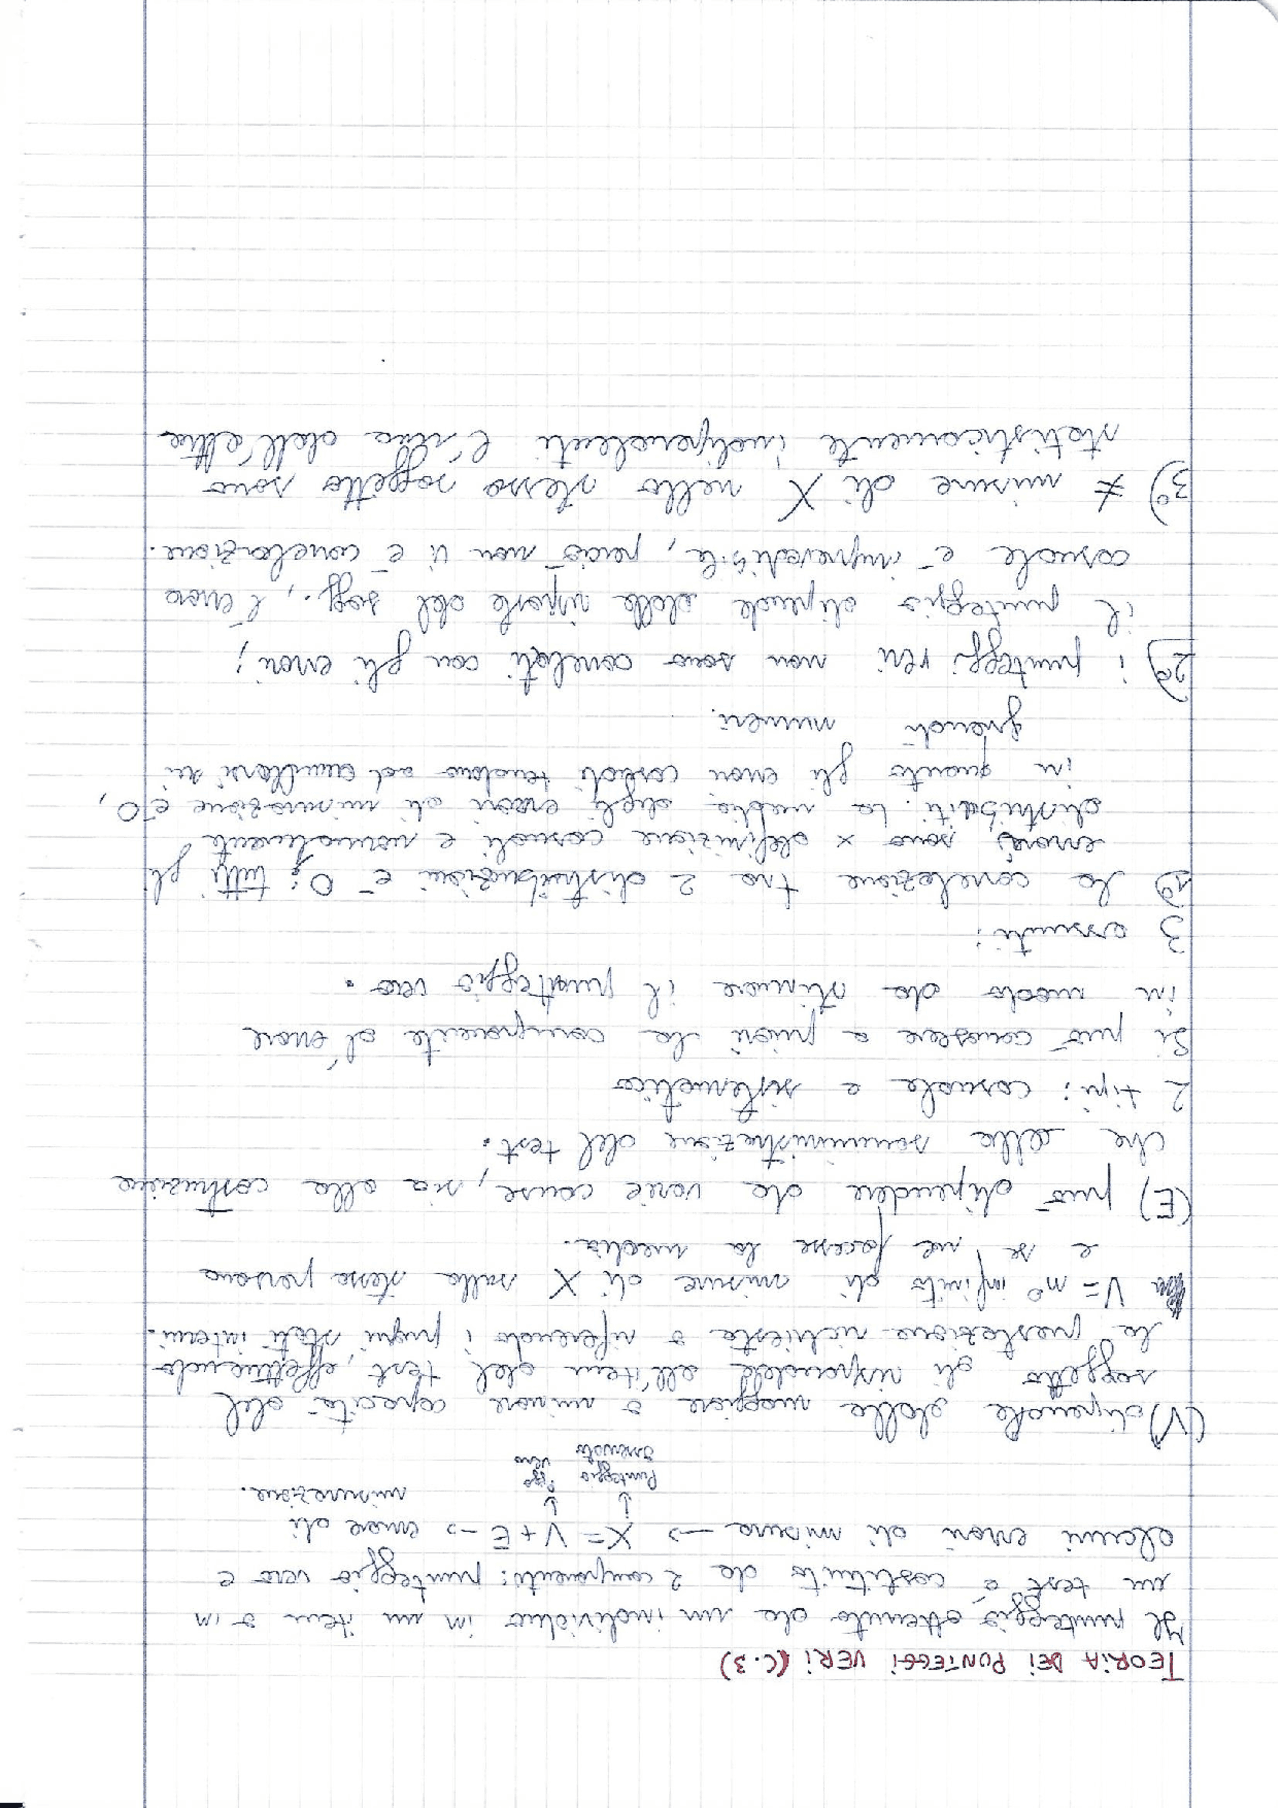 TEORIA DEI PUNTEGGI VERI (C.3)
Il punteggio ottenuto da un individuo in un item o in
un test è costituito da 2 componenti: punteggio vero e
alcuni errori di misura -> X = V + E -> errore di
↓ ↓ misurazione.
Punteggio osservato
vero
(V) dipende dalla maggiore o minore capacità del
soggetto di rispondere all'item del test, effettuando
la prestazione richiesta o riferendo i propri stati interni.
V = n° infinito di misure di X sulla stessa persona
e se ne facesse la media.
(E) può dipendere da varie cause, sia alla costruzione
che alla somministrazione del test.
2 tipi: casuale e sistematico
Si può conoscere a priori la componente d'errore
in modo da stimare il punteggio vero.
3 assunti:
1°) la correlazione tra 2 distribuzioni è 0; tutti gli
errori sono x definizione casuali e normalmente
distribuiti. La media degli errori di misurazione è 0,
in quanto gli errori casuali tendono ad annullarsi su
grandi numeri.
2°) i punteggi veri non sono correlati con gli errori;
il punteggio dipende dalle risposte del sogg., l'errore
casuale è imprevedibile, perciò non vi è correlazione.
3°) ≠ misure di X nello stesso soggetto sono
statisticamente indipendenti l'una dall'altra